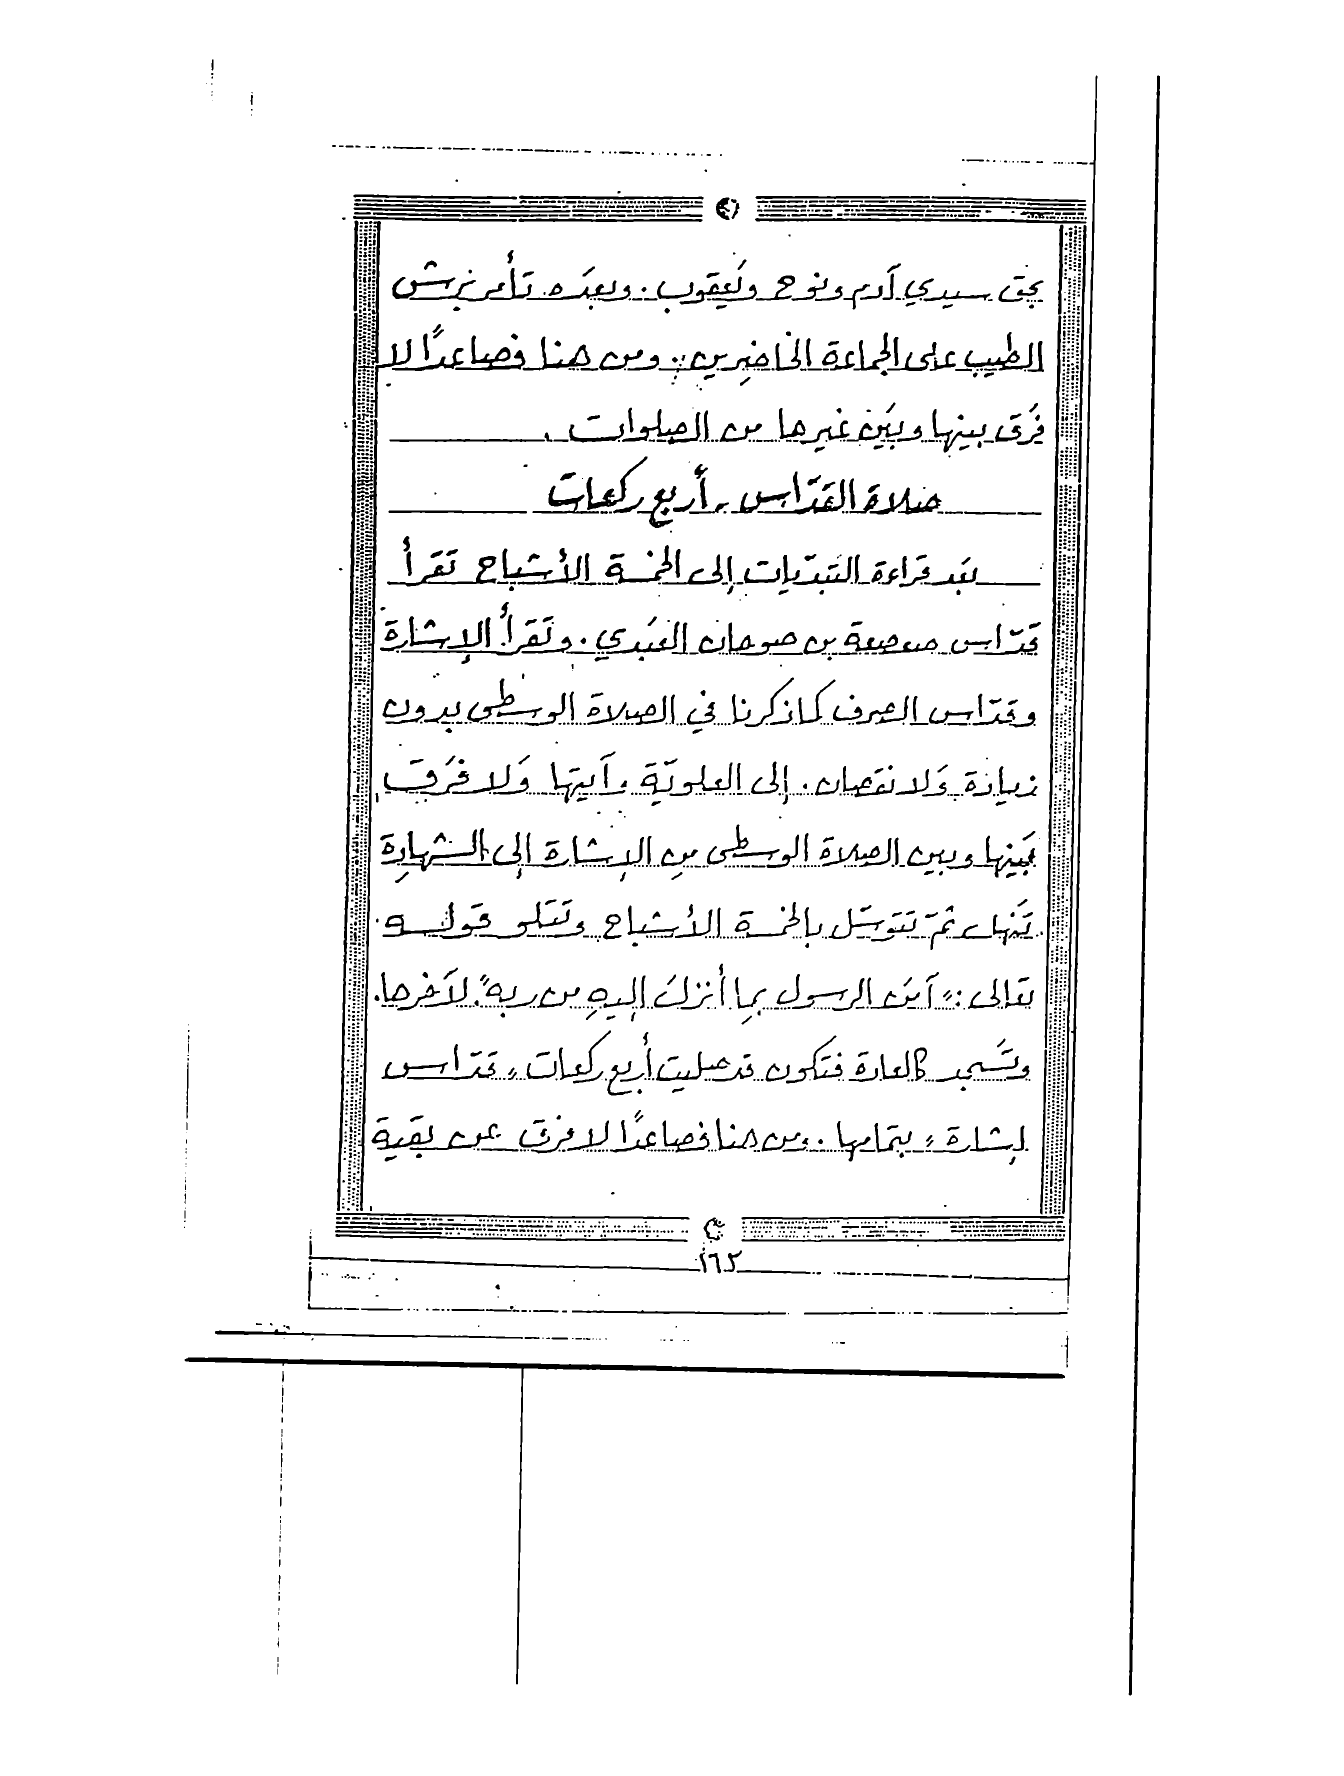 بحق سيدي آدم ونوح ويَعقوب. وبعدَه تأمر برش
الطيب على الجماعة الحاضِرين: ومن هنا فصاعدًا لا
فَرق بينها وبَين غيرها من الصلوات.
صلاة القدّاس - أربع ركعات
بَعد قراءة التبدّيات إلى الخمسة الأشباح تَقرأ
قدّاس صعصعة بن صوحان العَبدي. وتَقرأ الإشارة
وقدّاس الصرف كما ذكرنا في الصلاة الوسطى بدون
زيادة وَلا نقصان. إلى العلويّة وآيتها وَلا فَرق
بَينها وبين الصلاة الوسطى مِن الإشارة إلى الشهادِة
تَنهاء ثمّ تتوسّل بالخمسة الأشباح وتَتلو قوله
تعالى: "آمَن الرسول بمِا أنزلَ إليهِ من ربهِ". لآخرها.
وتَسجد كالعادة فتكون قد صليت أربع ركعات "قدّاس
إشارة" بتمامها. ومن هنا فصاعدًا لا فرق عن بقية
١٦٢